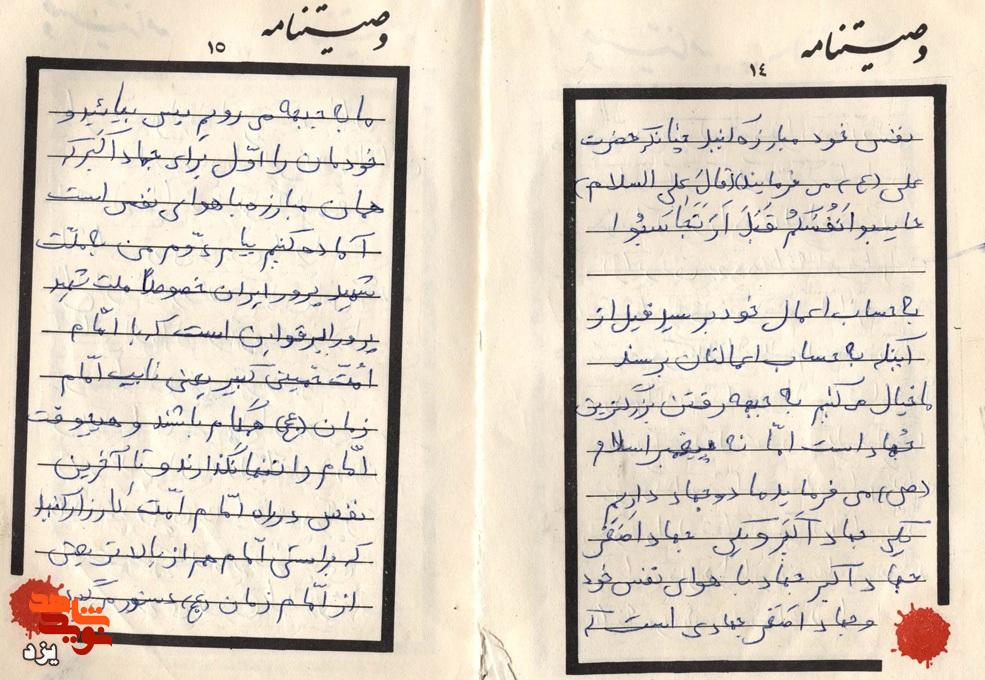 وصیتنامه
١٤
نفس خود مبارزه کنید چنانکه حضرت
علی (ع) می فرمایند (قال علی السلام)
حاسبوا انفُسَکُم قَبلَ اَن تُحاسَبُوا
به حساب اعمال خود برسید قبل از
آنکه به حساب اعمالتان برسند
ما خیال می کنیم به جبهه رفتن بزرگترین
جهاد است امّا نه پیغمبر اسلام
(ص) می فرماید ما دو جهاد داریم
یکی جهاد اکبر و یکی جهاد اصغر
جهاد اکبر جهاد با هوای نفس خود
و جهاد اصغر جهادی است که
وصیتنامه
١٥
ما به جبهه می رویم پس بیائید و
خودمان را اوّل برای جهاد اکبر که
همان مبارزه با هوای نفس است
آماده کنیم پیام دوّم من به ملّت
شهید پرور ایران خصوصاً ملت شهید
پرور این است که با امّام
امّت خمینی کبیر یعنی نایب امّام
زمان (عج) همگام باشند و هیچوقت
امّام را تنها نگذارند و تا آخرین
نفس در راه امّام امّت کارزار کنید
که براستی امّام هم از بالاتر یعنی
از امّام زمان (عج) دستور می گیرد
شاهد
نوید
یزد